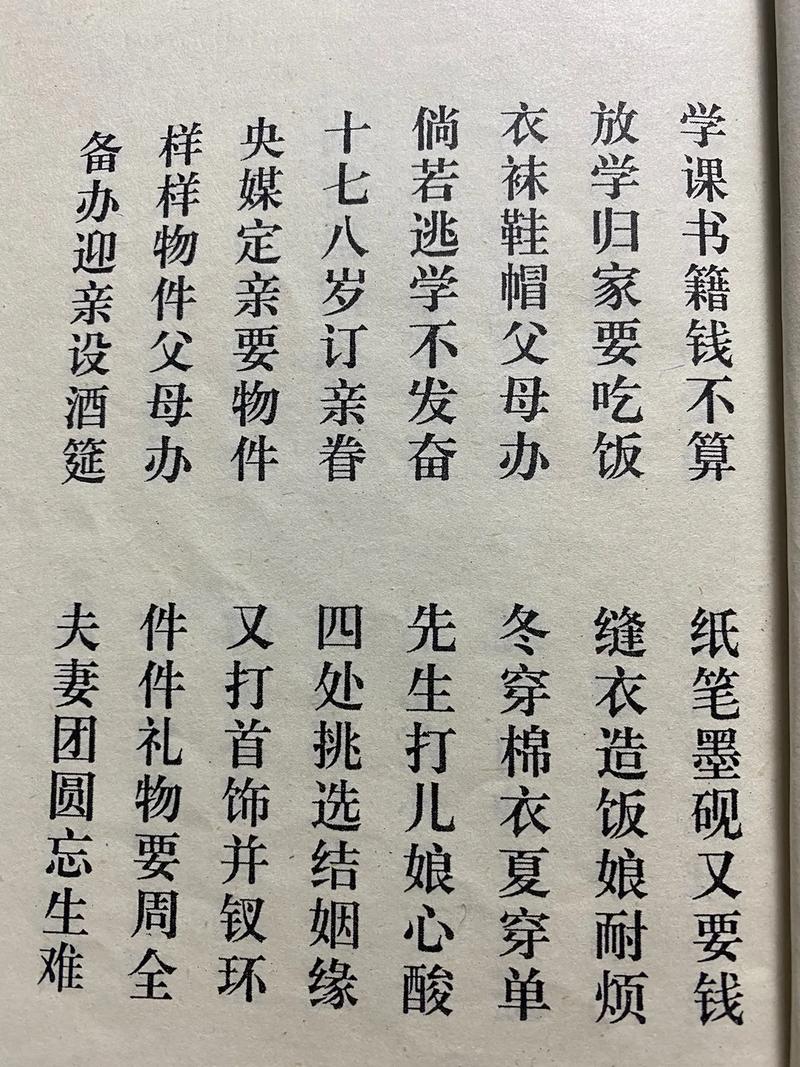 学课书籍钱不算
纸笔墨砚又要钱
放学归家要吃饭
缝衣造饭娘耐烦
衣袜鞋帽父母办
冬穿棉衣夏穿单
倘若逃学不发奋
先生打儿娘心酸
十七八岁订亲眷
四处挑选结姻缘
央媒定亲要物件
又打首饰并钗环
样样物件父母办
件件礼物要周全
备办迎亲设酒筵
夫妻团圆忘生难